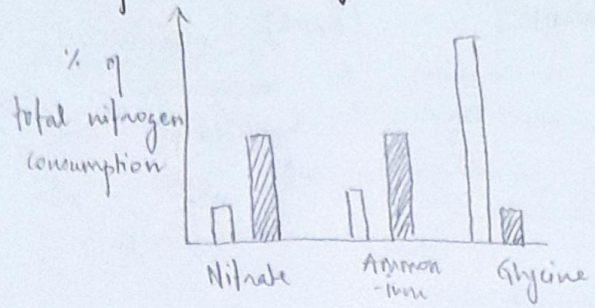 % of
total nitrogen
consumption
Nitrate
Ammon
-ium
Glycine